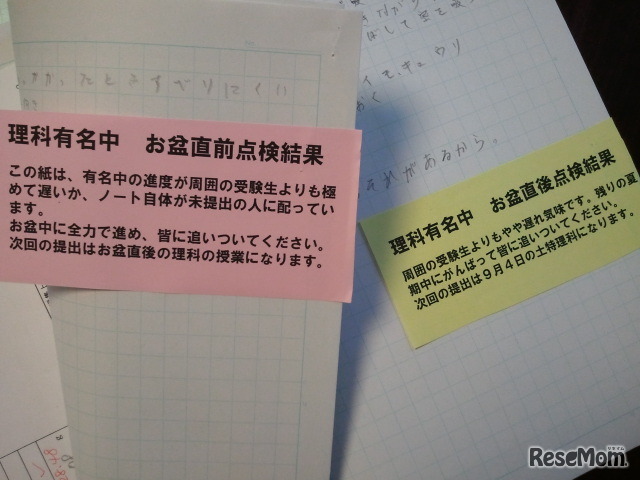 理科有名中　お盆直前点検結果
この紙は、有名中の進度が周囲の受験生よりも極
めて遅いか、ノート自体が未提出の人に配ってい
ます。
お盆中に全力で進め、皆に追いついてください。
次回の提出はお盆直後の理科の授業になります。
それがあるから。
理科有名中　お盆直後点検結果
周囲の受験生よりもやや遅れ気味です。残りの夏
期中にがんばって皆に追いついてください。
次回の提出は９月４日の土特理科になります。
ReseMom.
リセマム